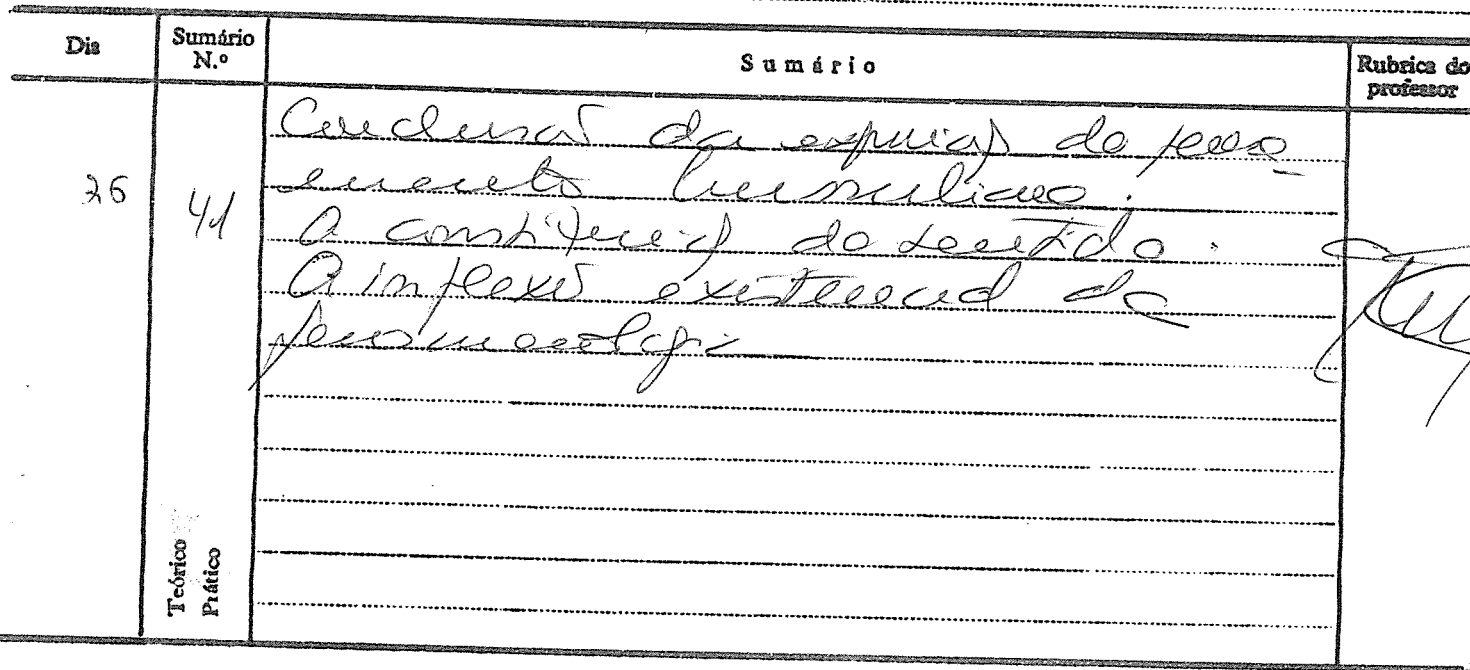 Dia
Sumário N.º
Sumário
Rubrica do professor
26
41
Conclusão da exposição do pensa
mento husserliano.
A constituição do sentido.
A inflexão existencial da
fenomenologia
Teórico
Prático